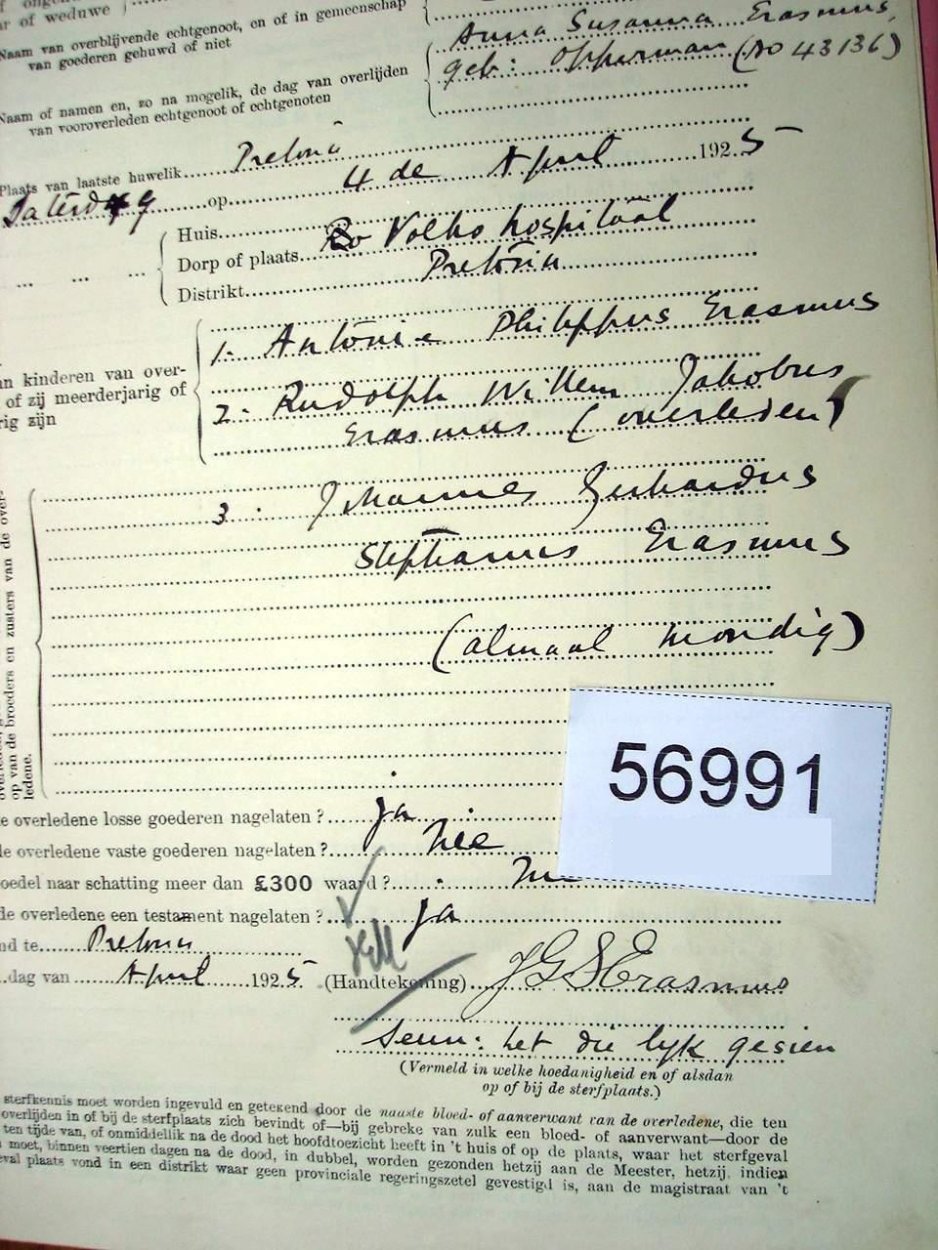 ar of weduwe
Naam van overblijvende echtgenoot, en of in gemeenschap
van goederen gehuwd of niet
Anna Susanna Erasmus,
geb: Opperman (No 43136)
Naam of namen en, zo na mogelik, de dag van overlijden
van vooroverleden echtgenoot of echtgenoten
Plaats van laatste huwelik Pretoria
Saterdag op 4 de April 1925
Huis
Dorp of plaats Volks hospitaal
Distrikt Pretoria
1. Antonie Philippus Erasmus
an kinderen van over-
of zij meerderjarig of
rig zijn
2. Rudolph Willem Jakobus
Erasmus (overleden)
3. Johannes Gerhardus
Stephanus Erasmus
(almaal mondig)
op van de broeders en zusters van de over-
ledene.
56991
e overledene losse goederen nagelaten ? Ja
de overledene vaste goederen nagelaten ? Nee
oedel naar schatting meer dan £300 waard ?
de overledene een testament nagelaten ? Ja
nd te Pretoria
dag van April 1925 (Handtekening) JGS Erasmus
Seun: het die lyk gesien
(Vermeld in welke hoedanigheid en of alsdan
op of bij de sterfplaats.)
sterfkennis moet worden ingevuld en getekend door de naaste bloed- of aanverwant van de overledene, die ten
overlijden in of bij de sterfplaats zich bevindt of—bij gebreke van zulk een bloed- of aanverwant—door de
ten tijde van, of onmiddellik na de dood het hoofdtoezicht heeft in 't huis of op de plaats, waar het sterfgeval
moet, binnen veertien dagen na de dood, in dubbel, worden gezonden hetzij aan de Meester, hetzij, indien
eval plaats vond in een distrikt waar geen provinciale regeringszetel gevestigd is, aan de magistraat van 't